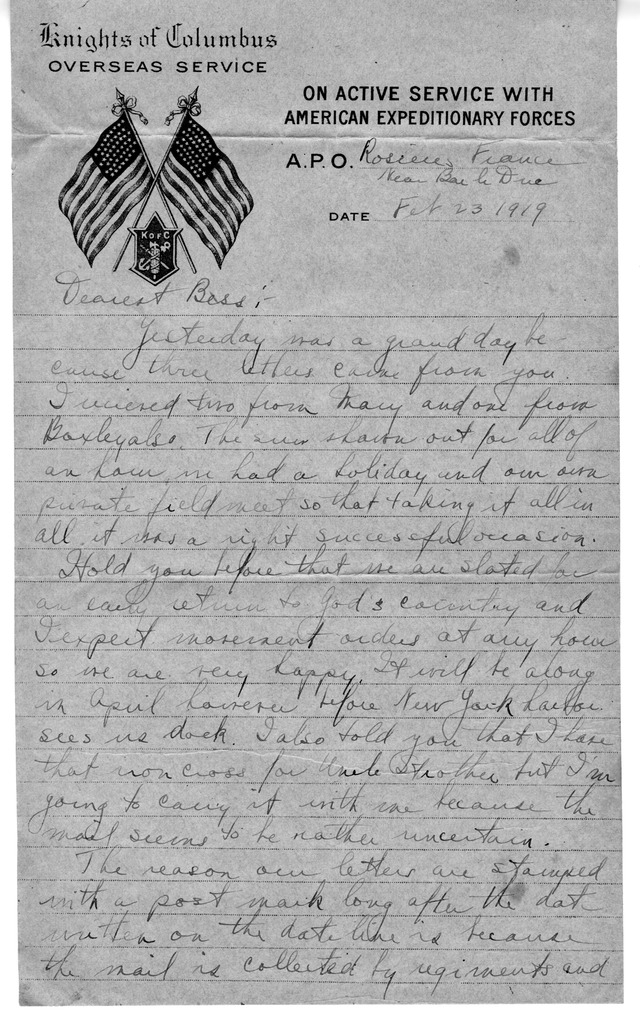 Knights of Columbus
OVERSEAS SERVICE
ON ACTIVE SERVICE WITH
AMERICAN EXPEDITIONARY FORCES
A.P.O. Rosieres France
Near Bar le Duc
DATE Feb 23 1919
K OF C
Dearest Bess:-
Yesterday was a grand day be-
cause three letters came from you.
I recieved two from Mary and one from
Boxley also. The sun shown out for all of
an hour, we had a holiday and our own
private field meet so that taking it all in
all it was a right successful occasion.
I told you before that we are slated for
an early return to God's country and
I expect movement orders at any hour
so we are very happy. It will be along
in April however before New York harbor
sees us dock. I also told you that I have
that iron cross for Uncle Strother but I'm
going to carry it with me because the
mail seems to be rather uncertain.
The reason our letters are stamped
with a post mark long after the date
written on the date line is because
the mail is collected by regiments and